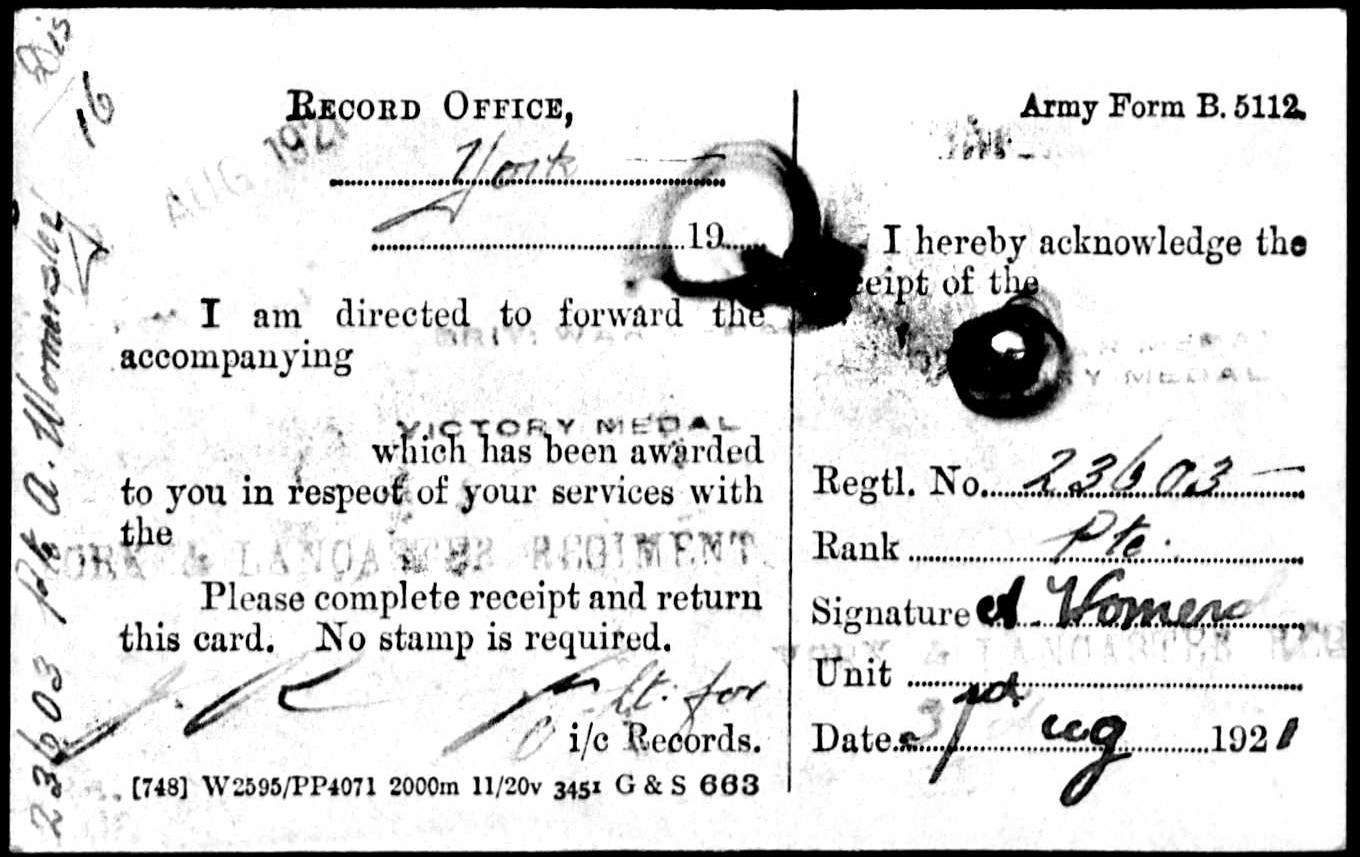 Dis
16
23603 Pte A. Womersley
RECORD OFFICE,
AUG 1921
York
19
I am directed to forward the
accompanying
BRIT: WAR
VICTORY MEDAL
which has been awarded
to you in respect of your services with
the
YORK & LANCASTER REGIMENT
Please complete receipt and return
this card. No stamp is required.
Lt. for
i/c Records.
[748] W2595/PP4071 2000m 11/20v 3451 G & S 663
Army Form B. 5112.
I hereby acknowledge the
eipt of the
Y MEDAL
Regtl. No. 23603
Rank Pte.
Signature A. Womers
YORK & LANCASTER REG
Unit
Date ug 1921